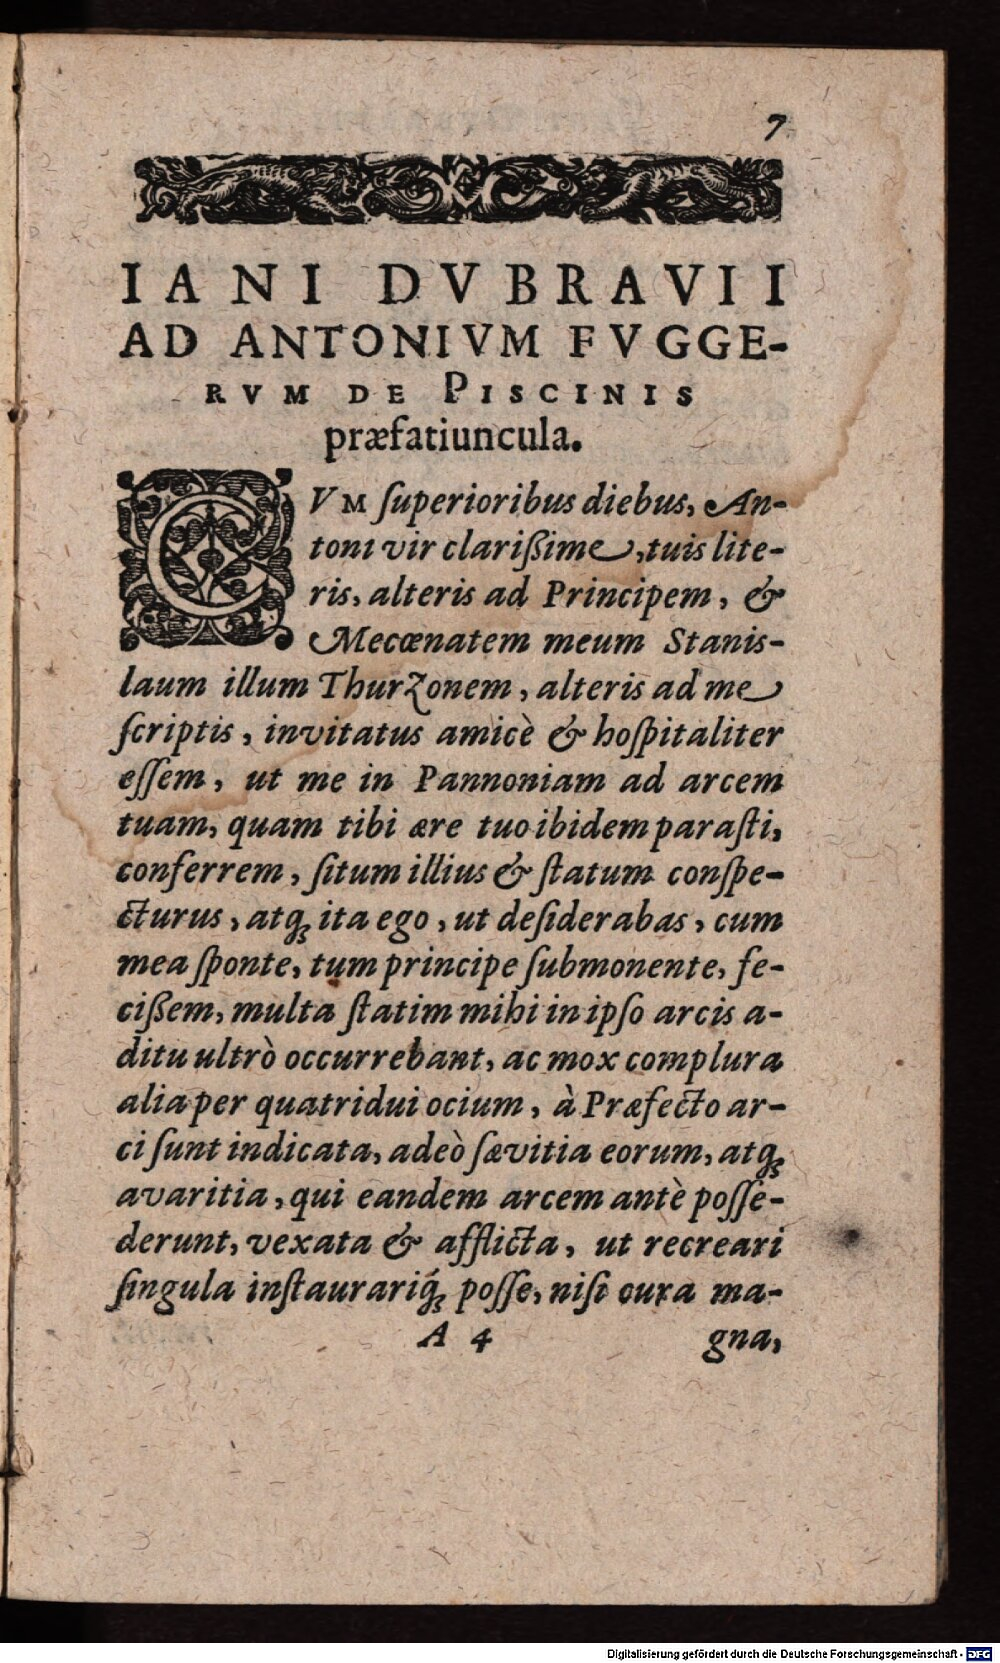 7
IANI DVBRAVII
AD ANTONIVM FVGGE-
RVM DE PISCINIS
præfatiuncula.
CVM ſuperioribus diebus, An-
toni vir clarißime, tuis lite-
ris, alteris ad Principem, &
Mecœnatem meum Stanis-
laum illum Thurzonem, alteris ad me
ſcriptis, invitatus amicè & hoſpitaliter
eſſem, ut me in Pannoniam ad arcem
tuam, quam tibi ære tuo ibidem paraſti,
conferrem, ſitum illius & ſtatum conſpe-
cturus, atq; ita ego, ut deſiderabas, cum
mea ſponte, tum principe ſubmonente, fe-
cißem, multa ſtatim mihi in ipſo arcis a-
ditu ultrò occurrebant, ac mox complura
alia per quatridui ocium, à Præfecto ar-
ci ſunt indicata, adeò ſævitia eorum, atq;
avaritia, qui eandem arcem antè poſſe-
derunt, vexata & afflicta, ut recreari
ſingula inſtaurariq́; poſſe, niſi cura ma-
A 4 gna,
Digitalisierung gefördert durch die Deutsche Forschungsgemeinschaft - DFG